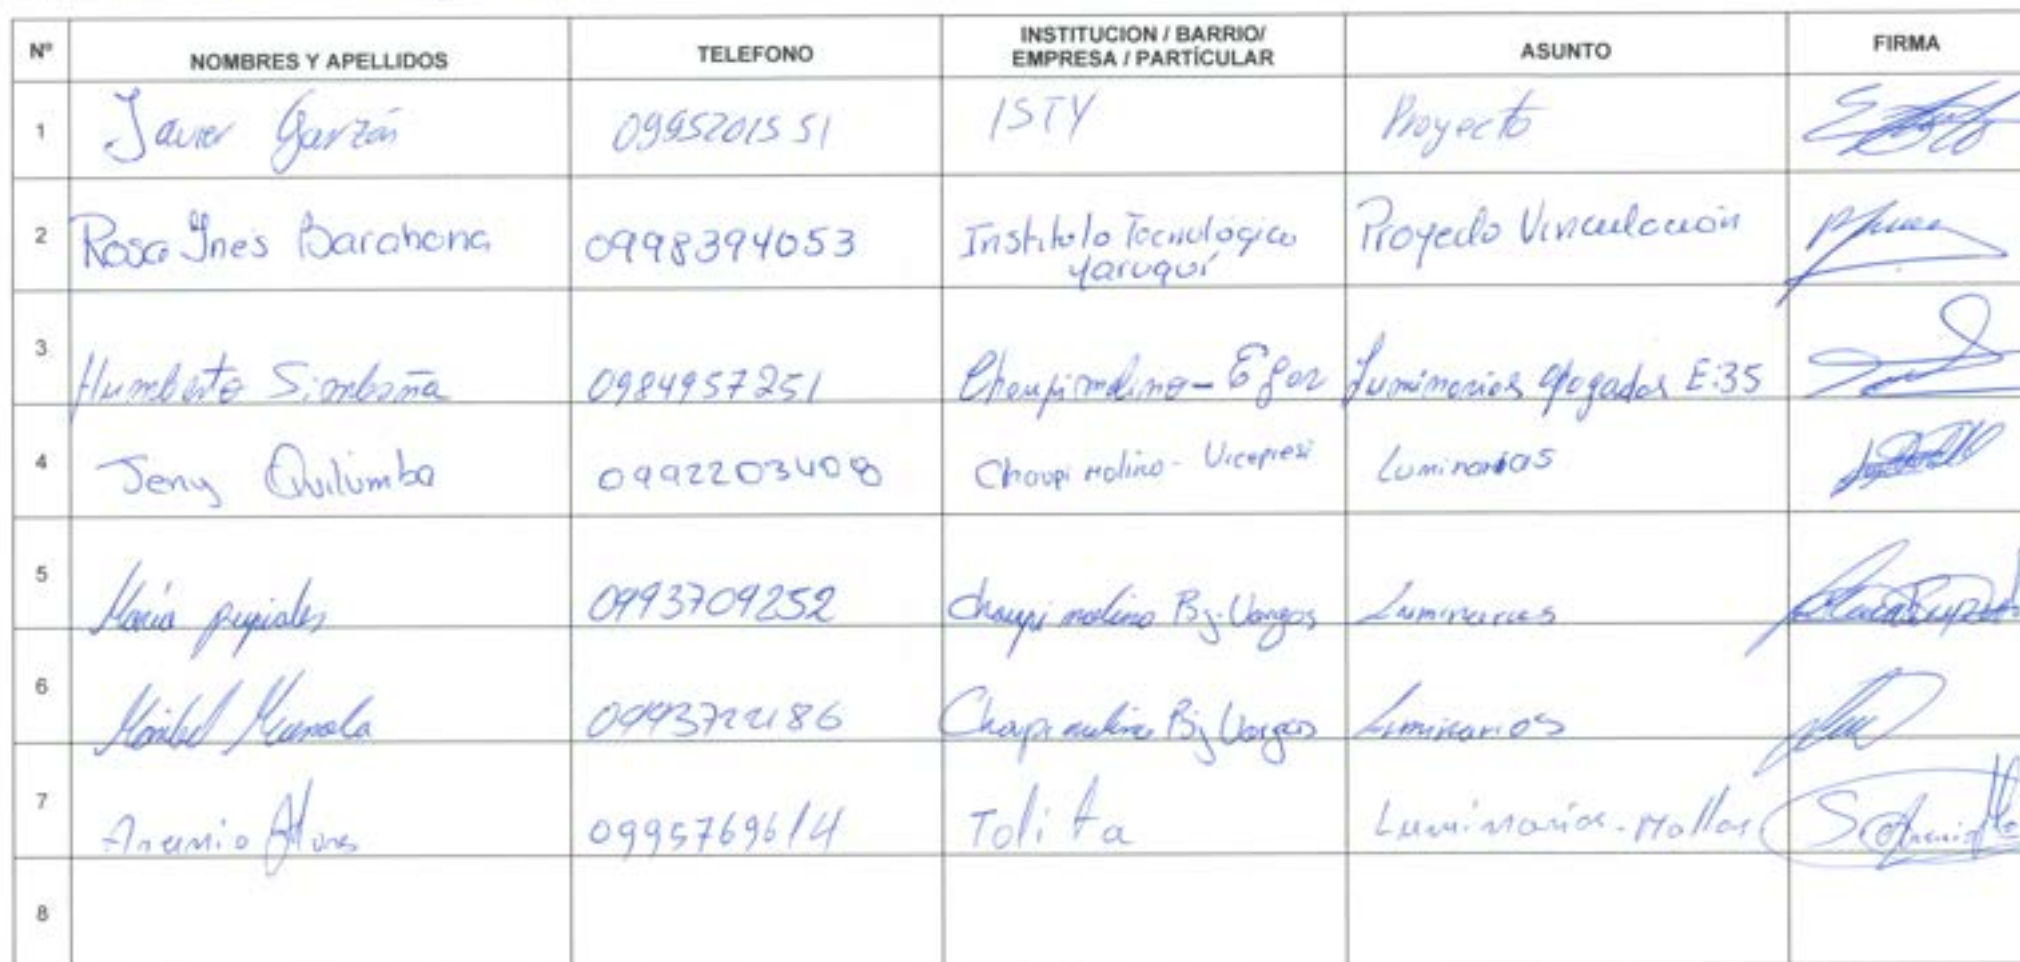 Nº NOMBRES Y APELLIDOS TELEFONO INSTITUCION / BARRIO/ EMPRESA / PARTÍCULAR ASUNTO FIRMA
1 Javier Garzón 0995201551 ISTY Proyecto
2 Rosa Ines Barahona 0998394053 Instituto Tecnológico Yaruquí Proyecto Vinculación
3 Humberto Simbaña 0984957251 Chaupimolino - Luminarias apagadas E:35
4 Jeny Quilumba 0992203408 Chaupi Molino - Vicepresi Luminarias
5 María pupiales 0993709252 Chaupi molino Bj. Vargas Luminarias
6 Maribel Chaupi molino Bj Vargas Luminarias
7 0995769614 Tolita Luminarias - Mallas
8